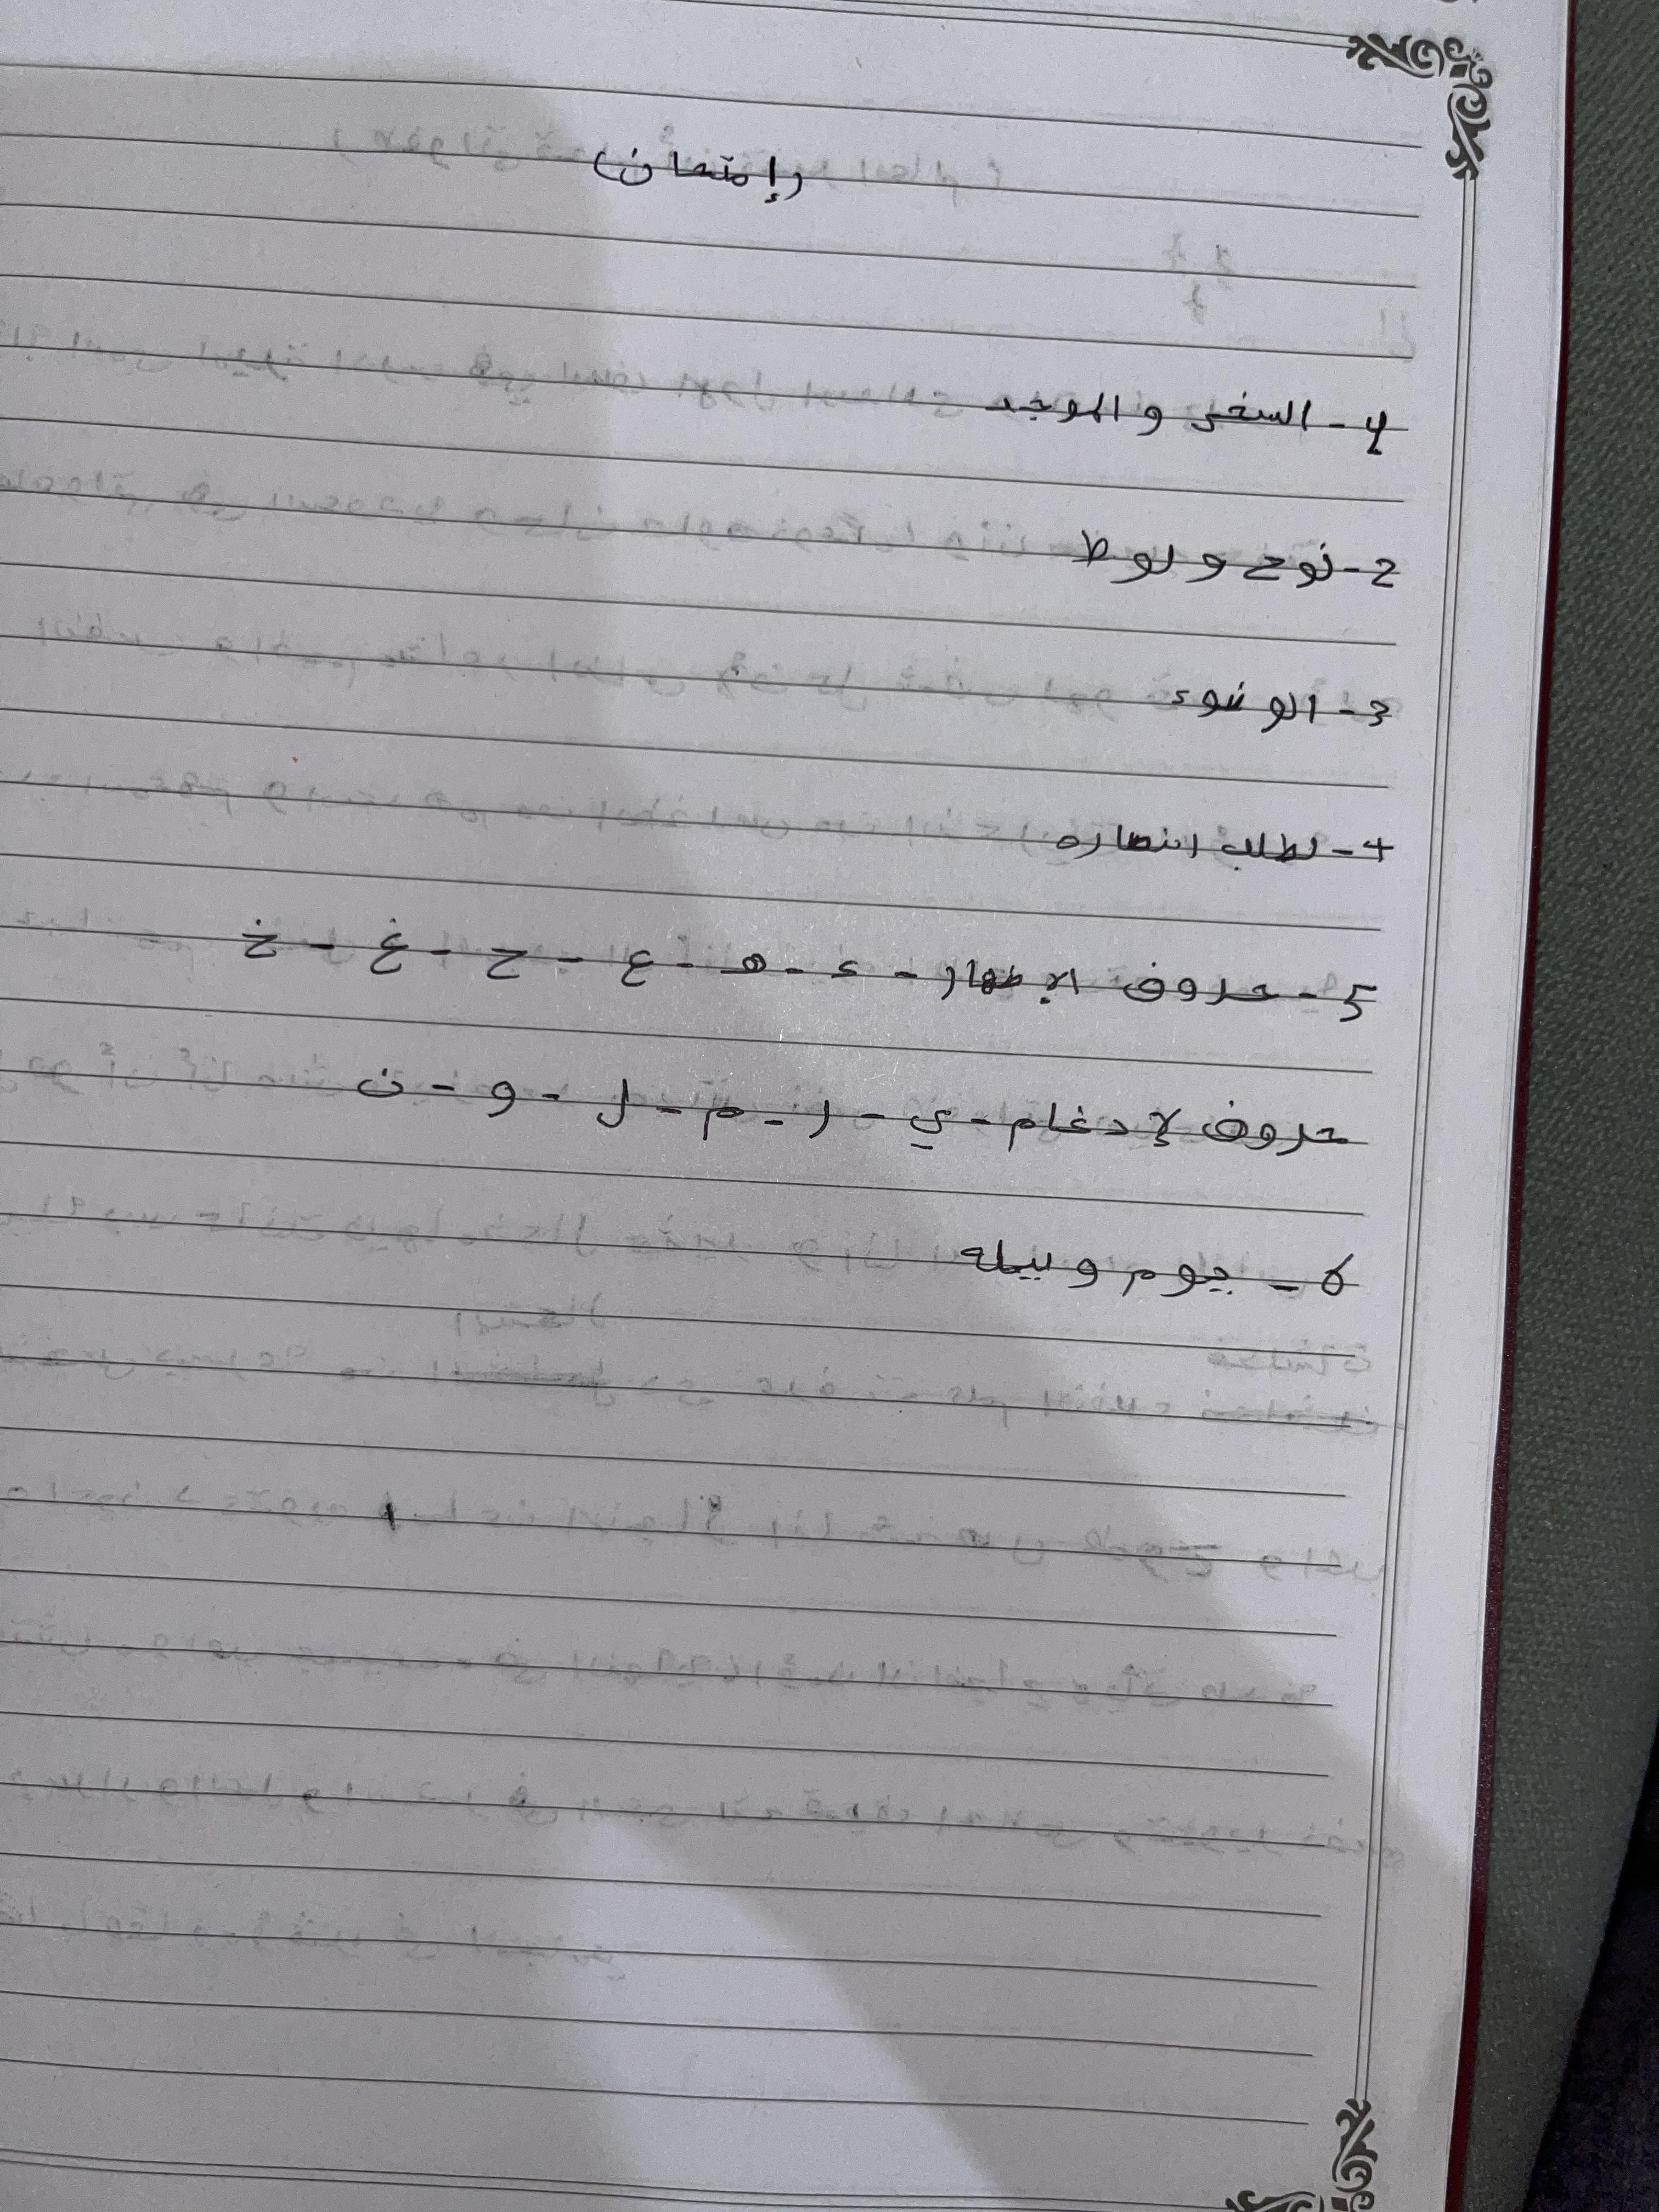 (إمتحان)
1- السخى والموجد
2- نوح ولوط
3- الوضوء
4- لطلب انتصاره
5- حروف الإظهار - ء - هـ - ع - ح - غ - خ
حروف لإدغام - ي - ر - م - ل - و - ن
6- يوم وليله